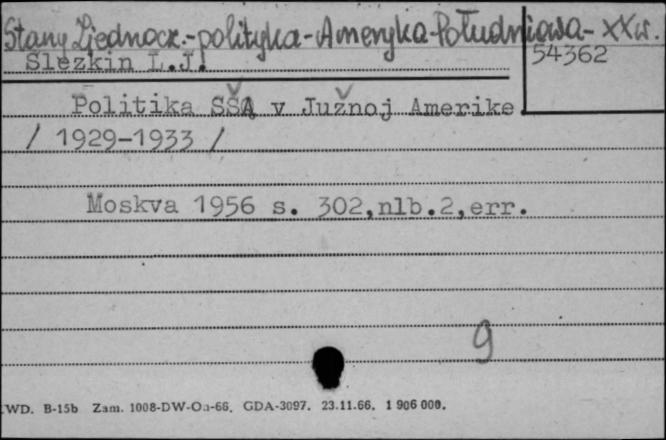 Stany Zjednocz.-polityka-Ameryka Południowa-XXw.
Slezkin L.J.
54362
Politika SŠA v Južnoj Amerike
/ 1929-1933 /
Moskva 1956 s. 302,nlb.2,err.
9
WD. B-15b Zam. 1008-DW-On-66. GDA-3097. 23.11.66. 1 906 000.